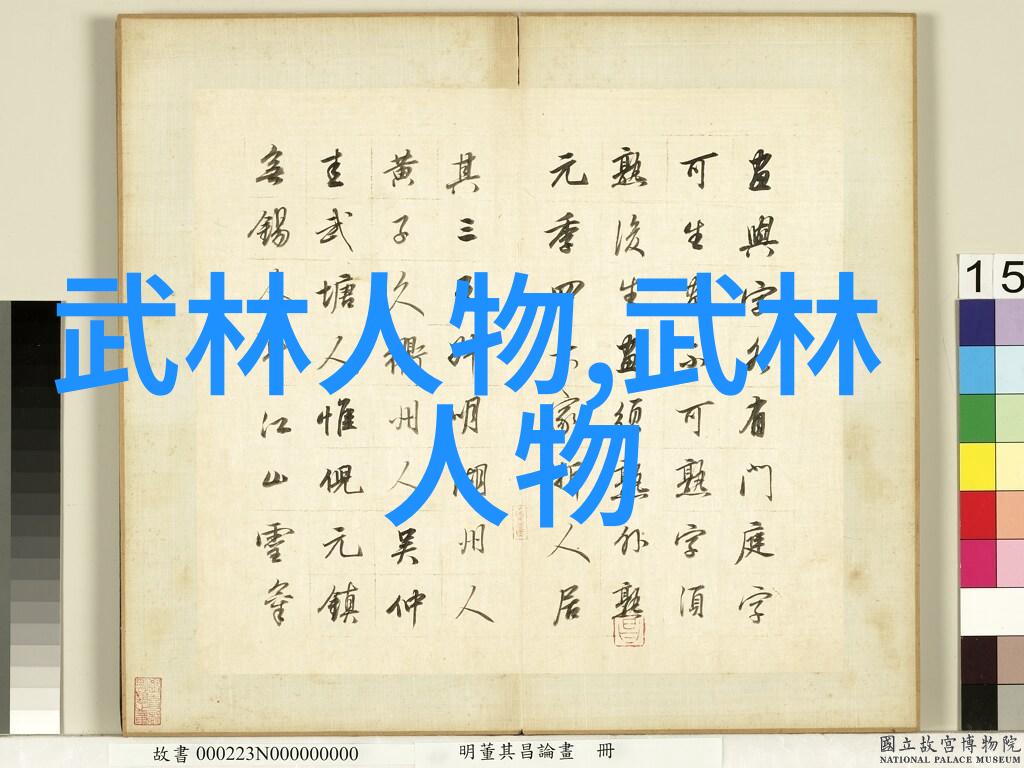 武林人物,武林
人物
畫與字各有門庭字
可生畫不可熟字須
熟後生畫須熟外熟
元季四大家浙人居
其三王叔明湖州人
黃子久衢州人吳仲
圭武塘人惟倪元鎮
無錫人耳江山靈氣
15
故書 000223N000000000
明董其昌論畫 冊
國立故宮博物院
NATIONAL PALACE MUSEUM